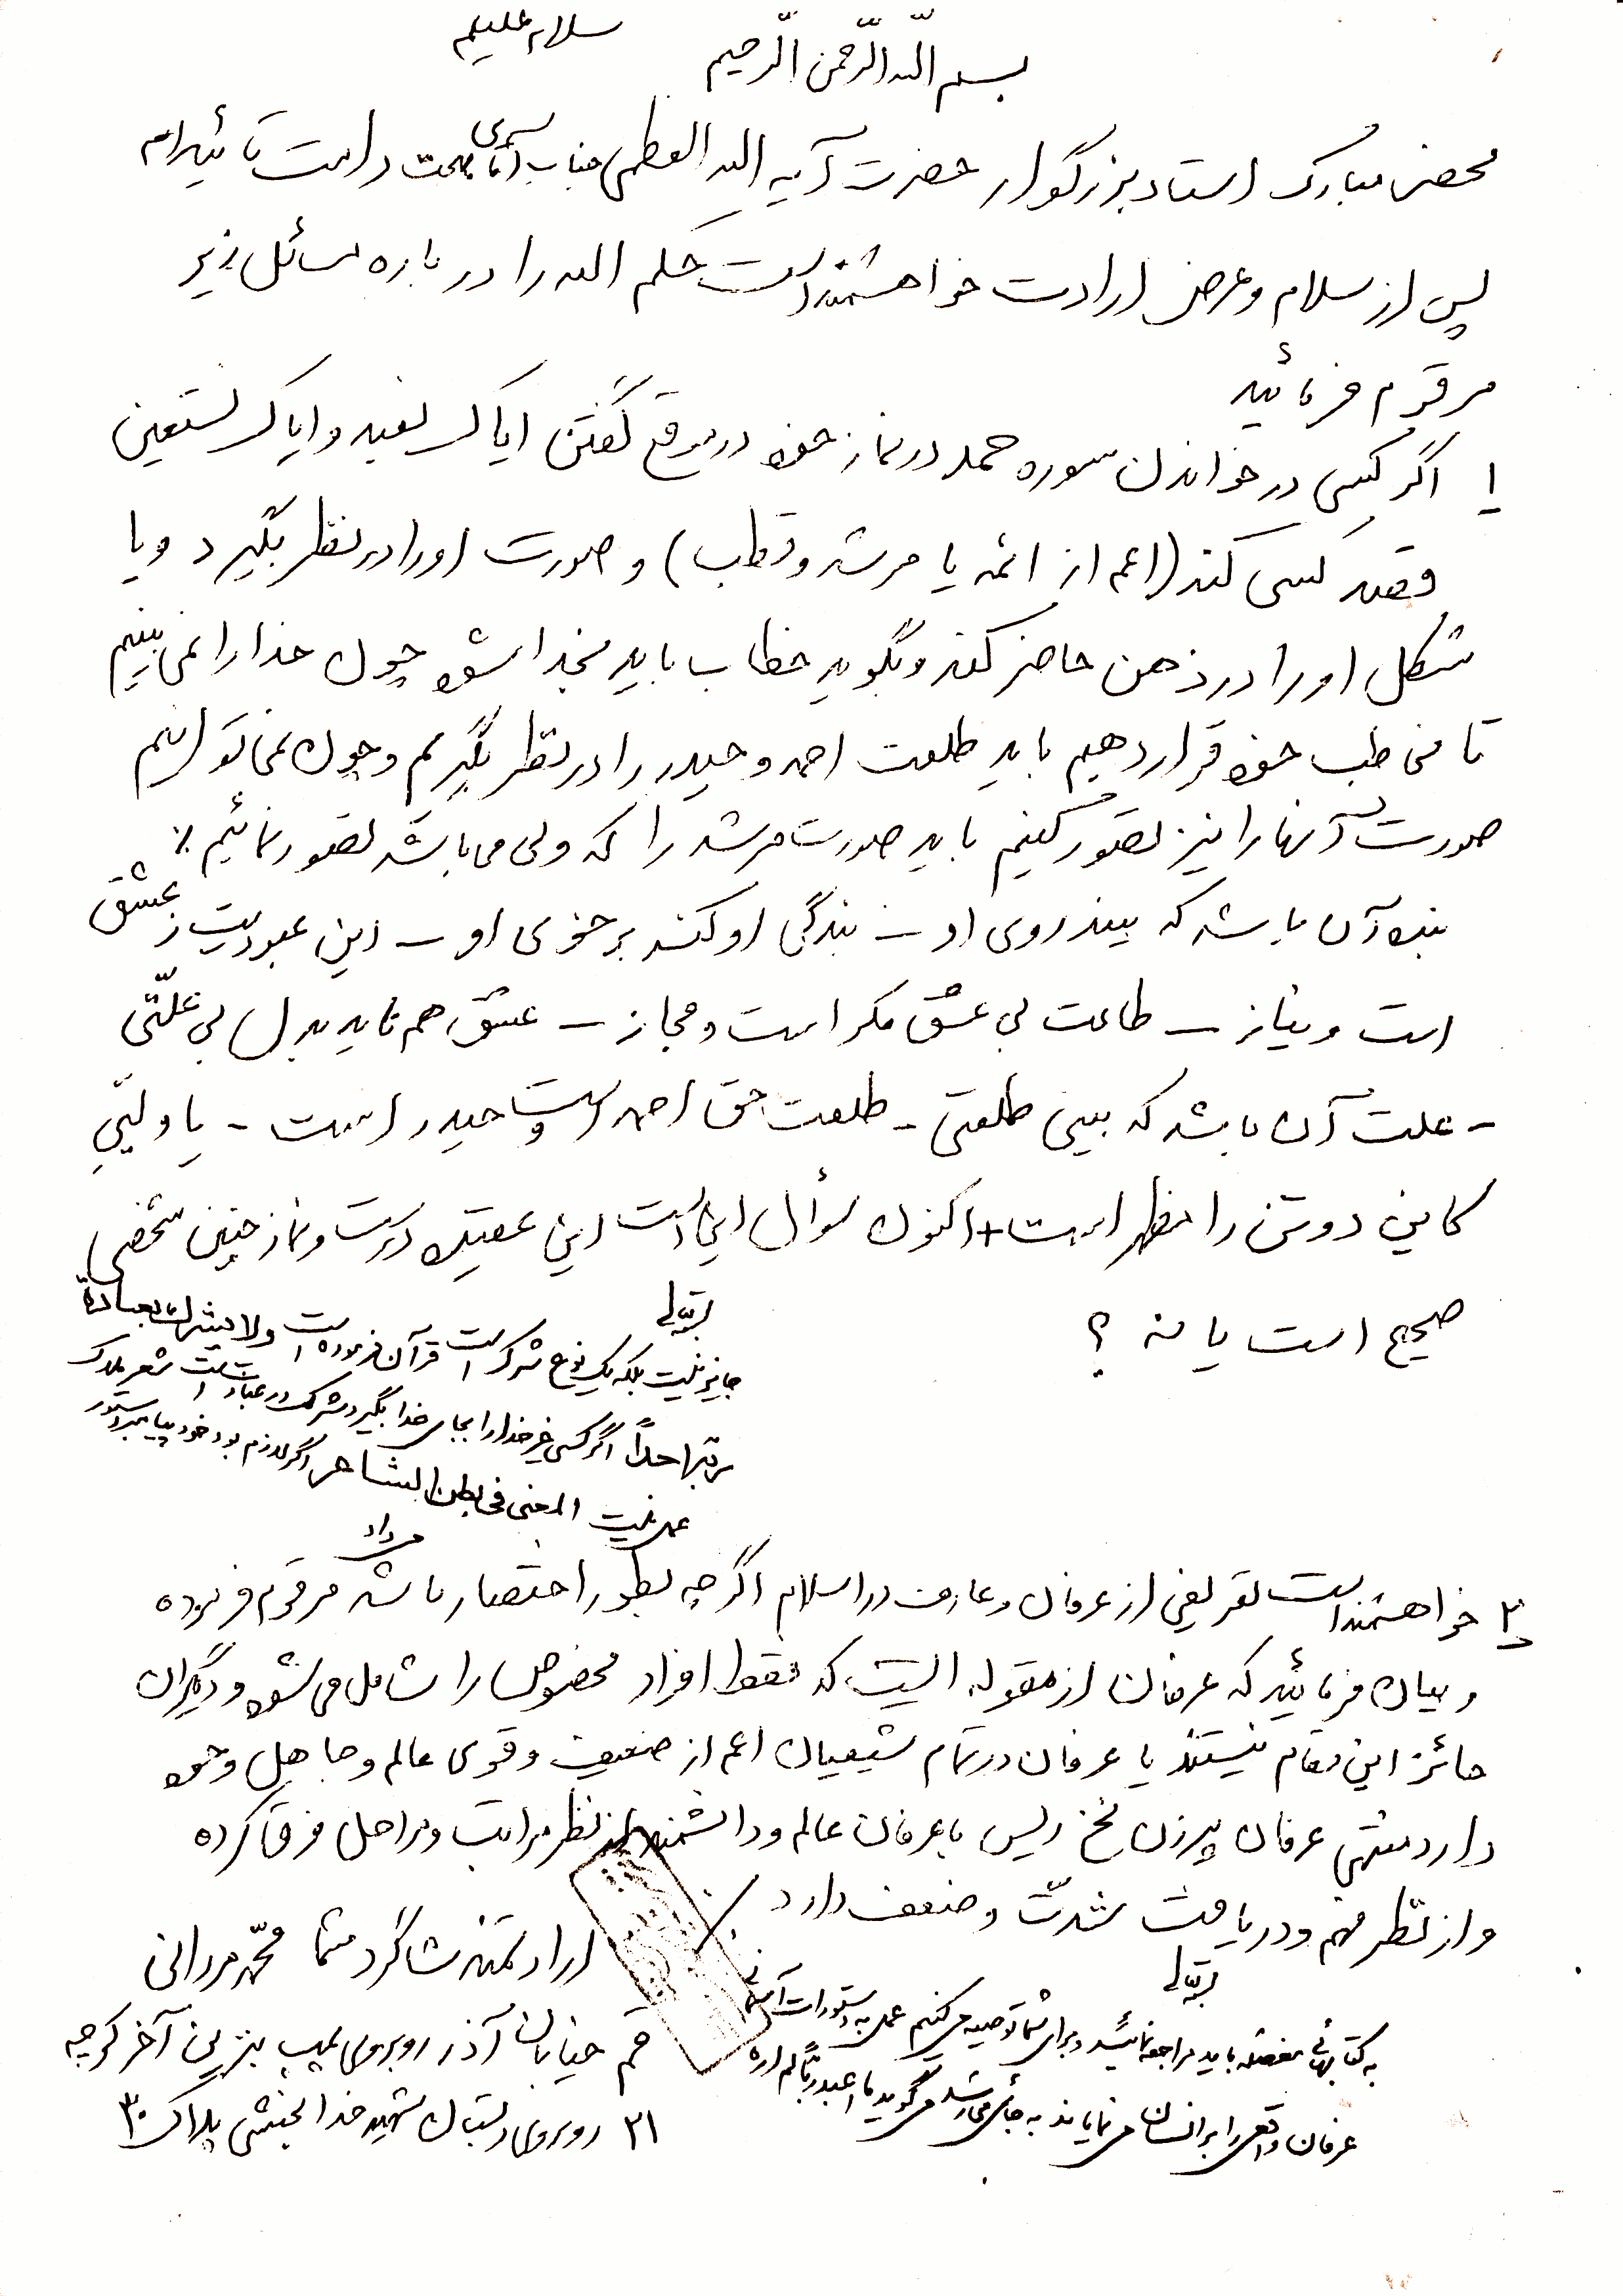 سلام علیکم
بسم الله الرحمن الرحیم
محضر مبارک استاد بزرگوار حضرت آیه الله العظمی جناب آقای دامت تائیداته
پس از سلام و عرض ارادت خواهشمند است حکم الله را در باره مسائل زیر
مرقوم فرمائید
۱ اگر کسی در خواندن سوره حمد در نماز خود در موقع گفتن ایاک نعبد و ایاک نستعین
قصد کسی کند (اعم از ائمه یا مرشد و قطب) و صورت او را در نظر بگیرد و یا
شکل او را در ذهن حاضر کند و بگوید خطاب باید بخدا شود چون خدا را نمی بینیم
تا مخاطب خود قرار دهیم باید طلعت احمد و حیدر را در نظر بگیریم و چون نمی توانیم
صورت آنها را نیز تصور کنیم باید صورت مرشد را که ولی می باشد تصور نمائیم ٪
بنده آن باشد که بیند روی او – بندگی او کند بر خوی او – این عبودیت ز عشق
است و نیاز – طاعت بی عشق مکر است و مجاز – عشق هم ناید بدل بی علّتی
– علت آن باشد که بینی طلعتی – طلعت حق احمد است و حیدر است – یا ولیّی
کاین دوتن را مظهر است + اکنون سؤال این است این عقیده درست و نماز چنین شخصی
صحیح است یا نه ؟
بسمه تعالی
جایز نیست بلکه یک نوع شرک است قرآن فرموده است ولا یشرک بعبادة
ربّه احداً اگر کسی غیر خدا را بجای خدا بگیرد شرک در عبادت است شعر مدرک
عمل نیست المعنی فی بطن الشاعر اگر لازم بود خود پیامبر دستور
میداد
۲ خواهشمند است تعریفی از عرفان و عارف در اسلام اگر چه بطور اختصار باشد مرقوم فرموده
و بیان فرمائید که عرفان از مقوله ایست که فقط افراد مخصوص را شامل می شود و دیگران
حائز این مقام نیستند یا عرفان در تمام شیعیان اعم از ضعیف و قوی عالم و جاهل وجود
دارد منتهی عرفان پیرزن نخ ریس با عرفان عالم و دانشمند از نظر مراتب و مراحل فرق کرده
و از نظر فهم و دریافت شدّت و ضعف دارد
ارادتمند شاگرد شما محمّد مردانی
قم خیابان آذر روبروی پمپ بنزین آخر کوچه
۳۱ روبروی دبستان شهید خدابخشی پلاک ۳۰
بسمه تعالی
به کتابهای مفصله باید مراجعه نمائید و برای شما توصیه می کنیم عمل به دستورات آسمانی
عرفان واقعی را بر انسان می نمایاند به جائی می رسد می گوید ما اعبد ربّاً لم اره